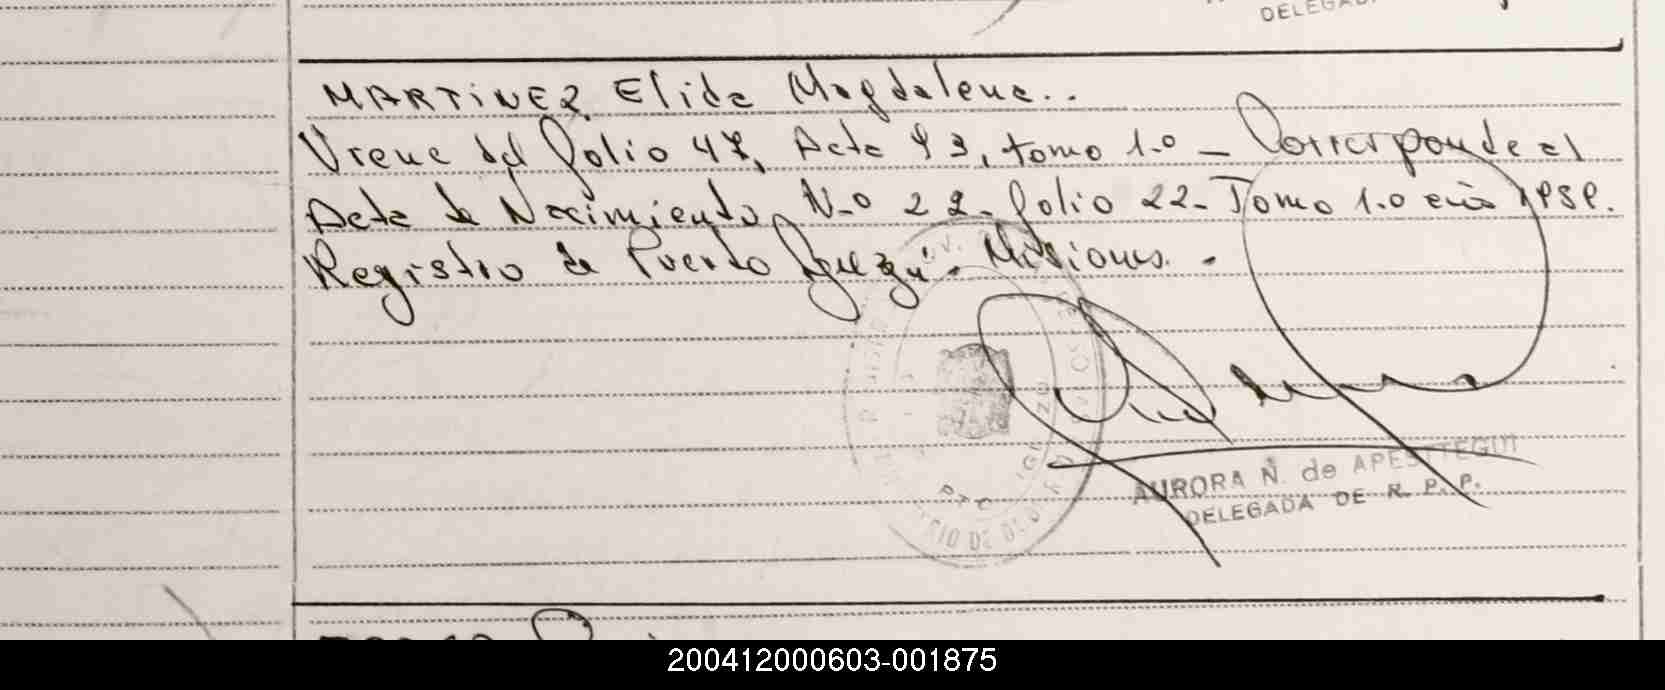 DELEGADA
MARTiNEZ Elida Magdalena..
Viene del folio 47, Acta 93, tomo 1.o - Corresponde al
Acta de Nacimiento N-o 22- folio 22- Tomo 1.o año
Registro de Puerto Iguazú. Misiones. -
AURORA N. de APESTTEGUI
DELEGADA DE R. P. P.
200412000603-001875